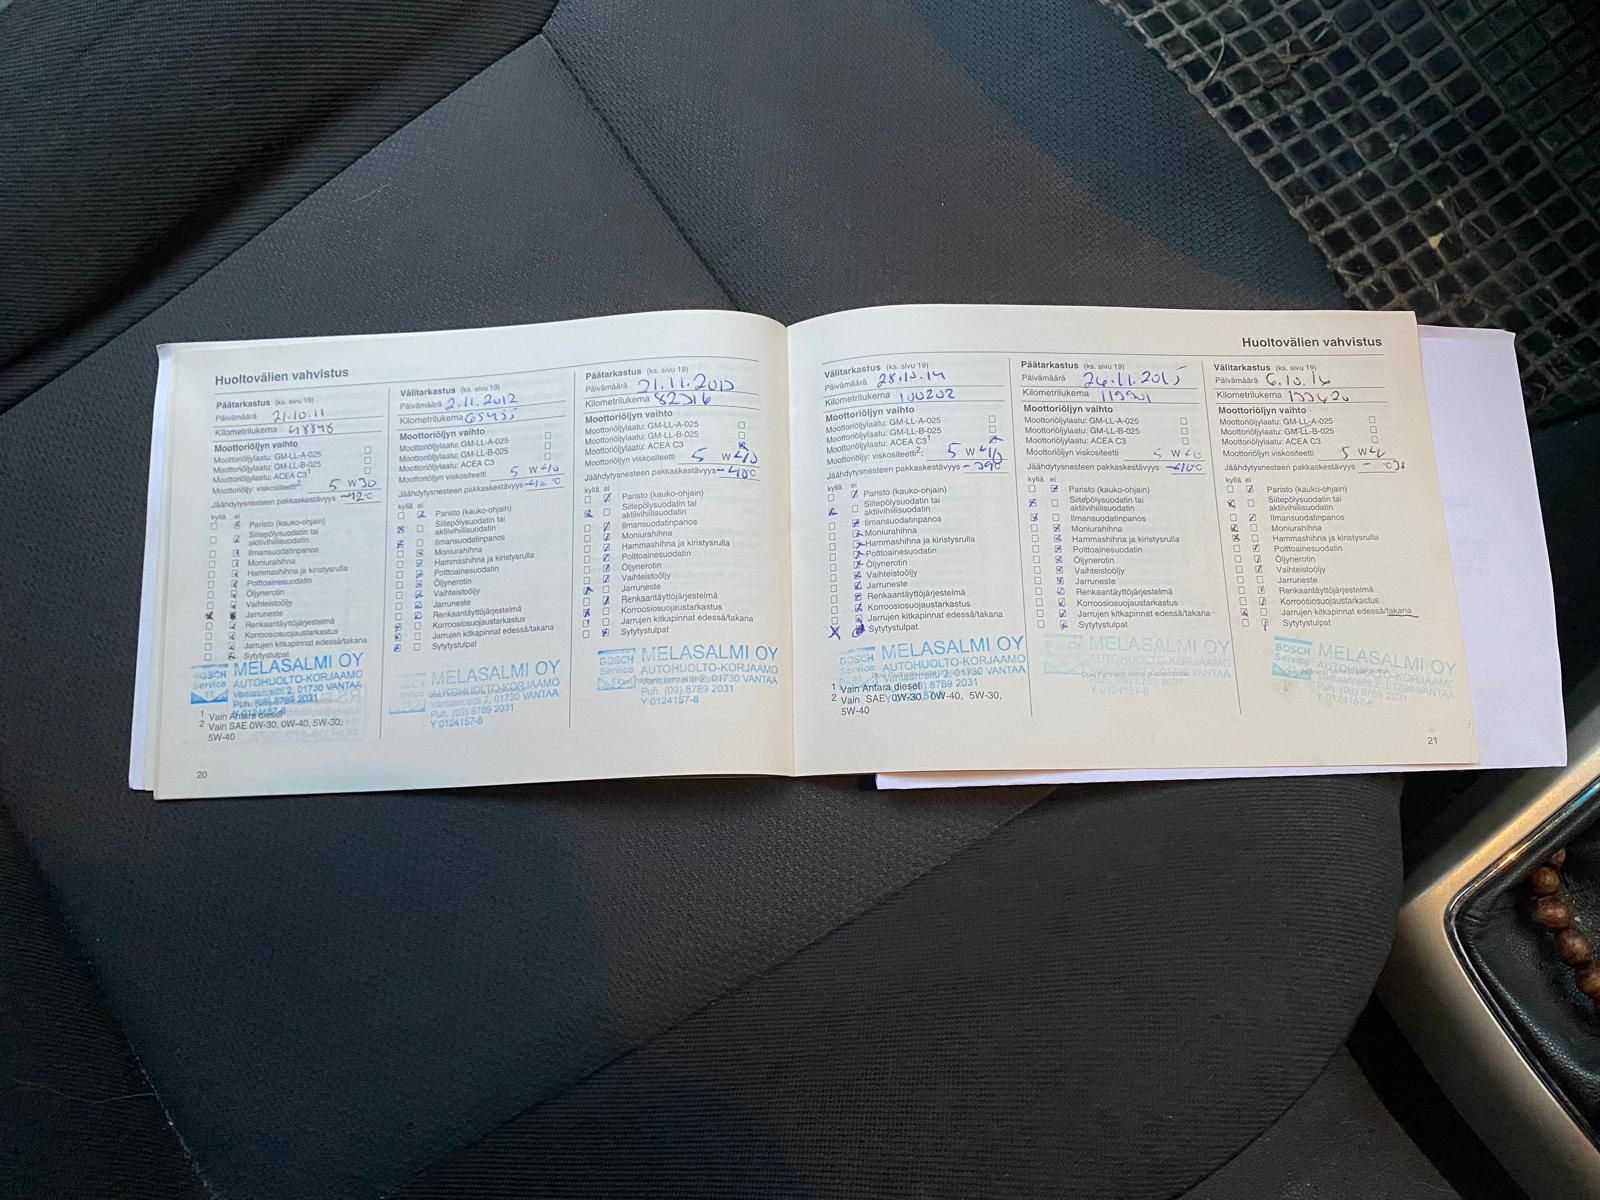 Huoltovälien vahvistus
Päätarkastus (ks. sivu 19)
Päivämäärä 21.10.11
Kilometrilukema 48848
Moottoriöljyn vaihto
Moottoriöljylaatu: GM-LL-A-025
Moottoriöljylaatu: GM-LL-B-025
Moottoriöljylaatu: ACEA C3¹
Moottoriöljy: viskositeetti² 5 W 30
Jäähdytysnesteen pakkaskestävyys -42 °C
kyllä ei
Paristo (kauko-ohjain)
Siitepölysuodatin tai
aktiivihiilisuodatin
Ilmansuodatinpanos
Moniurahihna
Hammashihna ja kiristysrulla
Polttoainesuodatin
Öljynerotin
Vaihteistoöljy
Jarruneste
Renkaantäyttöjärjestelmä
Korroosiosuojaustarkastus
Jarrujen kitkapinnat edessä/takana
Sytytystulpat
BOSCH
Service
MELASALMI OY
AUTOHUOLTO-KORJAAMO
Vantaanraitti 2, 01730 VANTAA
Puh. (09) 8789 2031
Y 0124157-8
¹ Vain Antara diesel
² Vain SAE 0W-30, 0W-40, 5W-30,
5W-40
20
Välitarkastus (ks. sivu 19)
Päivämäärä 2.11.2012
Kilometrilukema
Moottoriöljyn vaihto
Moottoriöljylaatu: GM-LL-A-025
Moottoriöljylaatu: GM-LL-B-025
Moottoriöljylaatu: ACEA C3
Moottoriöljyn viskositeetti 5 W 40
Jäähdytysnesteen pakkaskestävyys -40 °C
kyllä ei
Paristo (kauko-ohjain)
Siitepölysuodatin tai
aktiivihiilisuodatin
Ilmansuodatinpanos
Moniurahihna
Hammashihna ja kiristysrulla
Polttoainesuodatin
Öljynerotin
Vaihteistoöljy
Jarruneste
Renkaantäyttöjärjestelmä
Korroosiosuojaustarkastus
Jarrujen kitkapinnat edessä/takana
Sytytystulpat
MELASALMI OY
AUTOHUOLTO-KORJAAMO
Vantaanraitti 2, 01730 VANTAA
Puh. (09) 8789 2031
Y 0124157-8
Päätarkastus (ks. sivu 19)
Päivämäärä 21.11.2013
Kilometrilukema 82316
Moottoriöljyn vaihto
Moottoriöljylaatu: GM-LL-A-025
Moottoriöljylaatu: GM-LL-B-025
Moottoriöljylaatu: ACEA C3
Moottoriöljyn viskositeetti 5 W 40
Jäähdytysnesteen pakkaskestävyys -40 °C
kyllä ei
Paristo (kauko-ohjain)
Siitepölysuodatin tai
aktiivihiilisuodatin
Ilmansuodatinpanos
Moniurahihna
Hammashihna ja kiristysrulla
Polttoainesuodatin
Öljynerotin
Vaihteistoöljy
Jarruneste
Renkaantäyttöjärjestelmä
Korroosiosuojaustarkastus
Jarrujen kitkapinnat edessä/takana
Sytytystulpat
BOSCH
Service
MELASALMI OY
AUTOHUOLTO-KORJAAMO
Vantaanraitti 2, 01730 VANTAA
Puh. (09) 8789 2031
Y 0124157-8
Huoltovälien vahvistus
Välitarkastus (ks. sivu 19)
Päivämäärä 28.10.14
Kilometrilukema 100202
Moottoriöljyn vaihto
Moottoriöljylaatu: GM-LL-A-025
Moottoriöljylaatu: GM-LL-B-025
Moottoriöljylaatu: ACEA C3¹
Moottoriöljy: viskositeetti² 5 W 40
Jäähdytysnesteen pakkaskestävyys -39 °C
kyllä ei
Paristo (kauko-ohjain)
Siitepölysuodatin tai
aktiivihiilisuodatin
Ilmansuodatinpanos
Moniurahihna
Hammashihna ja kiristysrulla
Polttoainesuodatin
Öljynerotin
Vaihteistoöljy
Jarruneste
Renkaantäyttöjärjestelmä
Korroosiosuojaustarkastus
Jarrujen kitkapinnat edessä/takana
Sytytystulpat
BOSCH
Service
MELASALMI OY
AUTOHUOLTO-KORJAAMO
Vantaanraitti 2, 01730 VANTAA
Puh. (09) 8789 2031
Y 0124157-8
¹ Vain Antara diesel
² Vain SAE 0W-30, 0W-40, 5W-30,
5W-40
Päätarkastus (ks. sivu 19)
Päivämäärä 26.11.2015
Kilometrilukema 119901
Moottoriöljyn vaihto
Moottoriöljylaatu: GM-LL-A-025
Moottoriöljylaatu: GM-LL-B-025
Moottoriöljylaatu: ACEA C3
Moottoriöljyn viskositeetti 5 W 40
Jäähdytysnesteen pakkaskestävyys -40 °C
kyllä ei
Paristo (kauko-ohjain)
Siitepölysuodatin tai
aktiivihiilisuodatin
Ilmansuodatinpanos
Moniurahihna
Hammashihna ja kiristysrulla
Polttoainesuodatin
Öljynerotin
Vaihteistoöljy
Jarruneste
Renkaantäyttöjärjestelmä
Korroosiosuojaustarkastus
Jarrujen kitkapinnat edessä/takana
Sytytystulpat
MELASALMI OY
AUTOHUOLTO-KORJAAMO
Y 0124157-8
Välitarkastus (ks. sivu 19)
Päivämäärä 6.10.16
Kilometrilukema
Moottoriöljyn vaihto
Moottoriöljylaatu: GM-LL-A-025
Moottoriöljylaatu: GM-LL-B-025
Moottoriöljylaatu: ACEA C3
Moottoriöljyn viskositeetti 5 W
Jäähdytysnesteen pakkaskestävyys - °C
kyllä ei
Paristo (kauko-ohjain)
Siitepölysuodatin tai
aktiivihiilisuodatin
Ilmansuodatinpanos
Moniurahihna
Hammashihna ja kiristysrulla
Polttoainesuodatin
Öljynerotin
Vaihteistoöljy
Jarruneste
Renkaantäyttöjärjestelmä
Korroosiosuojaustarkastus
Jarrujen kitkapinnat edessä/takana
Sytytystulpat
BOSCH
Service
MELASALMI OY
AUTOHUOLTO-KORJAAMO
Puh. (09) 8789 2031
Y 0124157-8
21